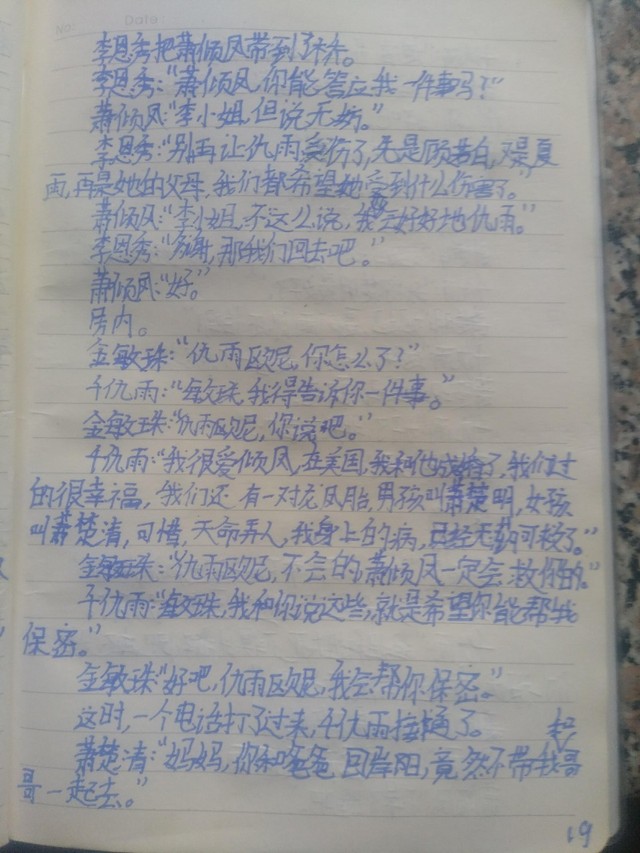 No:
Date:
李恩秀把萧倾风带到了林.
李恩秀:“萧倾风,你能答应我一件事吗?”
萧倾风:“李小姐,但说无妨。”
李恩秀:“别再让仇雨受伤了,先是顾若白,又是夏
雨,再是她的父母,我们都希望她受到什么伤害了。”
萧倾风:“李小姐,不这么说,我也会好好地仇雨。”
李恩秀:“多谢,那我们回去吧。”
萧倾风:“好。”
房内。
金敏珠:“仇雨欧尼,你怎么了?”
千仇雨:“敏珠,我得告诉你一件事。”
金敏珠:“仇雨欧尼,你说吧。”
千仇雨:“我很爱倾风,在美国,我和他成婚了,我们过
的很幸福,我们还有一对龙凤胎,男孩叫萧楚明,女孩
叫萧楚清,可惜,天命弄人,我身上的病,已经无药可救了。”
金敏珠:“仇雨欧尼,不会的,萧倾风一定会救你的。”
千仇雨:“敏珠,我和你说这些,就是希望你能帮我
保密。”
金敏珠“好吧,仇雨欧尼,我会帮你保密。”
这时,一个电话打了过来,千仇雨接通了。
萧楚清:“妈妈,你和爸爸回岸阳,竟然不带我和哥
哥一起去。”
19